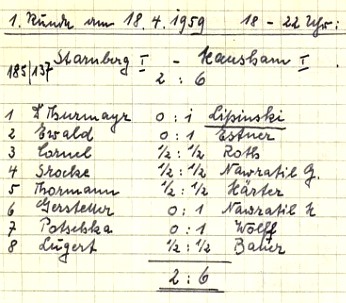 1. Runde am 18.4.1959 18 - 22 Uhr:
185/137 Starnberg I - Hausham I.
2 : 6
1 D Thurmayr 0 : 1 Lipinski
2 Ewald 0 : 1 Estner
3 Cornel ½ : ½ Roth
4 Srocke ½ : ½ Nawratil G.
5 Thormann ½ : ½ Härter
6 Gerstetter 0 : 1 Nawratil H
7 Potschka 0 : 1 Wolff
8 Lugert ½ : ½ Bauer
2 : 6